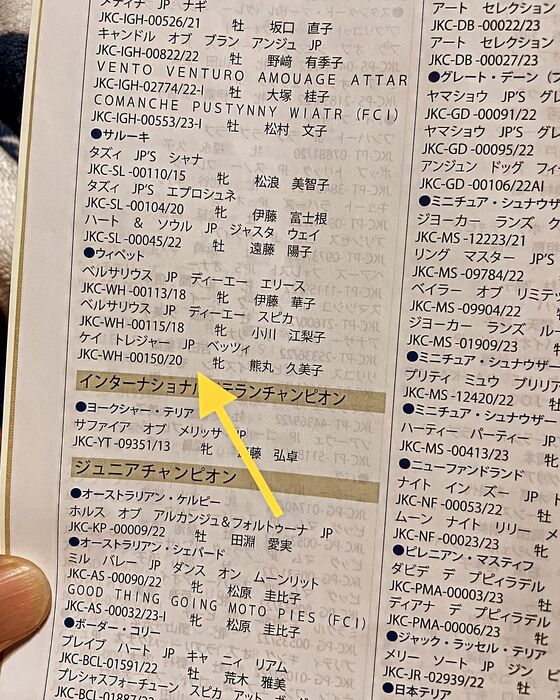 メディナ JP ナギ
JKC-IGH-00526/21 牡 坂口 直子
キャンドル オブ ブラン アンジュ JP
JKC-IGH-00822/22 牝 野﨑 有季子
VENTO VENTURO AMOUAGE ATTAR
JKC-IGH-02774/22-I 牡 大塚 桂子
COMANCHE PUSTYNNY WIATR (FCI)
JKC-IGH-00553/23-I 牡 松村 文子
●サルーキ
タズィ JP'S シャナ
JKC-SL -00110/15 牝 松浪 美智子
タズィ JP'S エプロシュネ
JKC-SL -00104/20 牝 伊藤 富士根
ハート & ソウル JP ジャスタ ウェイ
JKC-SL -00045/22 牡 遠藤 陽子
●ウィペット
ベルサリウス JP ディーエー エリース
JKC-WH -00113/18 牝 伊藤 華子
ベルサリウス JP ディーエー スピカ
JKC-WH -00115/18 牝 小川 江梨子
ケイ トレジャー JP ベッツィ
JKC-WH -00150/20 牝 熊丸 久美子
インターナショナル テランチャンピオン
●ヨークシャー・テリア
サファイア オブ メリッサ JP
JKC-YT -09351/13 藤 弘卓
ジュニアチャンピオン
●オーストラリアン・ケルピー
ホルス オブ アルカンジュ&フォルトゥーナ JP
JKC-KP -00009/22 牡 田淵 愛実
●オーストラリアン・シェパード
ミル バレー JP ダンス オン ムーンリット
JKC-AS -00090/22 牝 松原 圭比子
GOOD THING GOING MOTO PIES (FCI)
JKC-AS -00032/23-I 牝 松原 圭比子
●ボーダー・コリー
ブレイブ ハート JP キャ ニィ リアム
JKC-BCL-01591/22 牡 荒木 雅美
プレシャスフォーチュン スピカ アット
JKC-BCL-01887/22
アート セレクション
JKC-DB -00022/23
アート セレクション
JKC-DB -00027/23
●グレート・デーン (ブ
ヤマショウ JP'S グレ
JKC-GD -00091/22
ヤマショウ JP'S グレ
JKC-GD -00095/22
アンジュン ドッグ フィ
JKC-GD -00106/22AI
●ミニチュア・シュナウザ
ジョーカー ランズ ク
JKC-MS -12223/21
リング マスター JP'S
JKC-MS -09784/22
ベイラー オブ リミテ
JKC-MS -09904/22
ジョーカー ランズ ルー
JKC-MS -01909/23
●ミニチュア・シュナウザー
プリティ ミュウ ブリリア
JKC-MS -12420/22
●ミニチュア・シュナウザー
ハーティー パーティー JP
JKC-MS -00413/23
●ニューファンドランド
ナイト イン ズー JP
JKC-NF -00053/22
ムーン ナイト リリー メ
JKC-NF -00023/23
●ピレニアン・マスティフ
ダビデ デ プピィラデル
JKC-PMA-00003/23
ディアナ デ プピィラデル
JKC-PMA-00006/23
●ジャック・ラッセル・テリア
メリー ソート JP ジン
JKC-JR -02939/22
●日本テリア